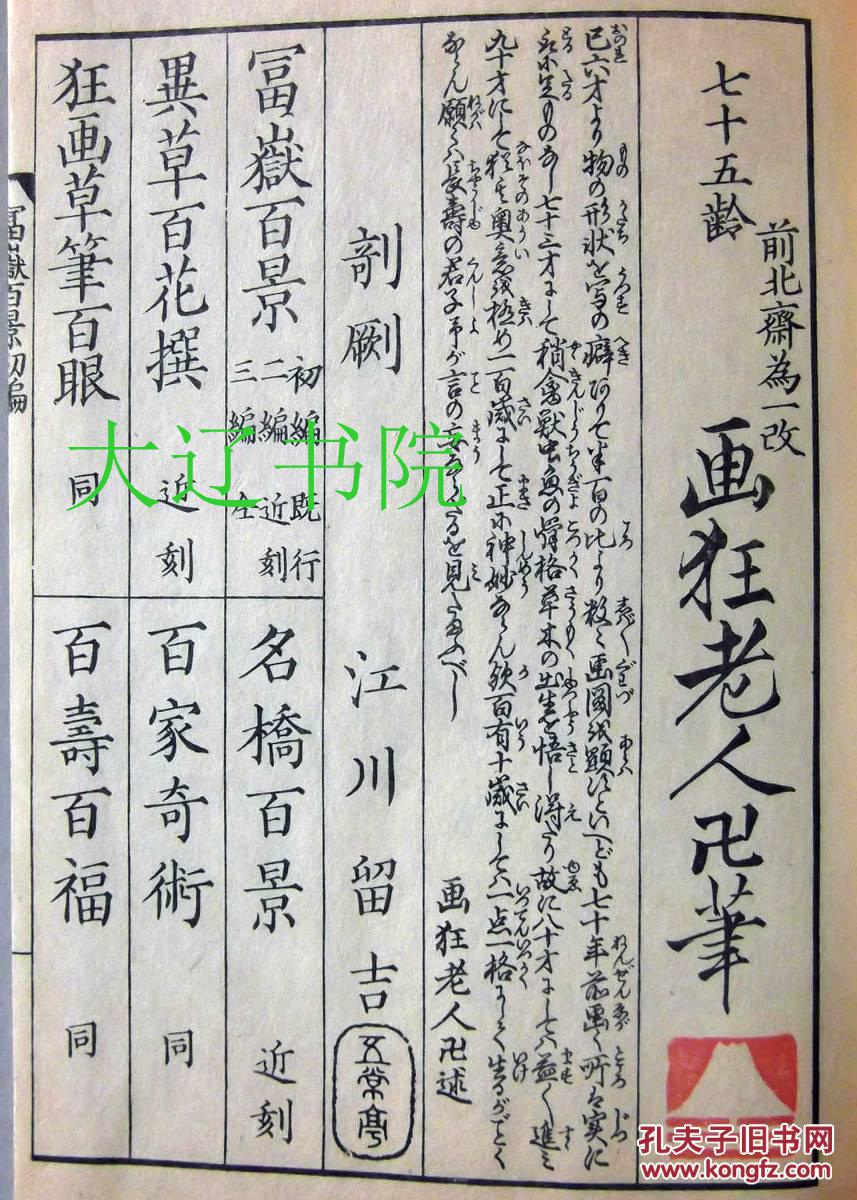 七十五齢
前北齋為一改
画狂老人卍筆
己六才より物の形状を写の癖ありて半百の比より数々画図を顕すといへども七十年前画く所は実に
取に足ものなし七十三才にして稍禽獣虫魚の骨格草木の出生を悟し得たり故に八十才にしては益々進み
九十才にして猶其奥意を極め一百歳にして正に神妙ならん歟百有十歳にしては一点一格にして生るがごとく
ならん願くは長寿の君子予が言の妄ならざるを見たまふべし
画狂老人卍述
剞劂 江川留吉 五常亭
冨嶽百景 初編既行
二編近刻
三編仝
名橋百景 近刻
異草百花撰 近刻
百家奇術 同
狂画草筆百眼 同
百壽百福 同
冨嶽百景初編
大辽书院
孔夫子旧书网
www.kongfz.com